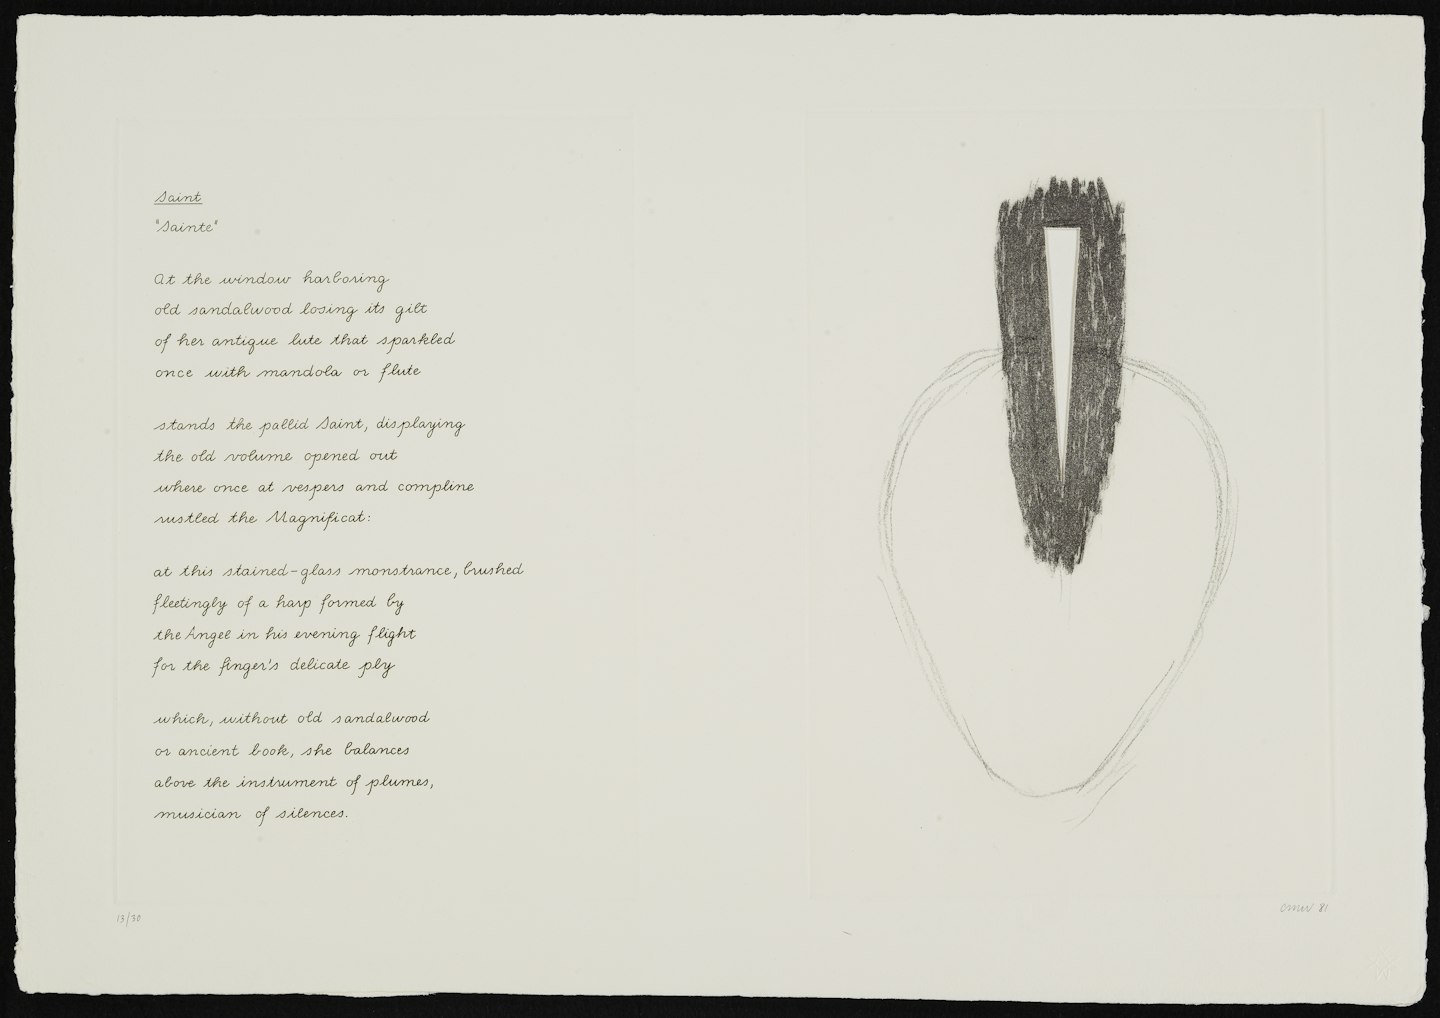 Saint
"Sainte"
At the window harboring
old sandalwood losing its gilt
of her antique lute that sparkled
once with mandola or flute
stands the pallid Saint, displaying
the old volume opened out
where once at vespers and compline
rustled the Magnificat:
at this stained-glass monstrance, brushed
fleetingly of a harp formed by
the Angel in his evening flight
for the finger's delicate ply
which, without old sandalwood
or ancient book, she balances
above the instrument of plumes,
musician of silences.
13/30
81